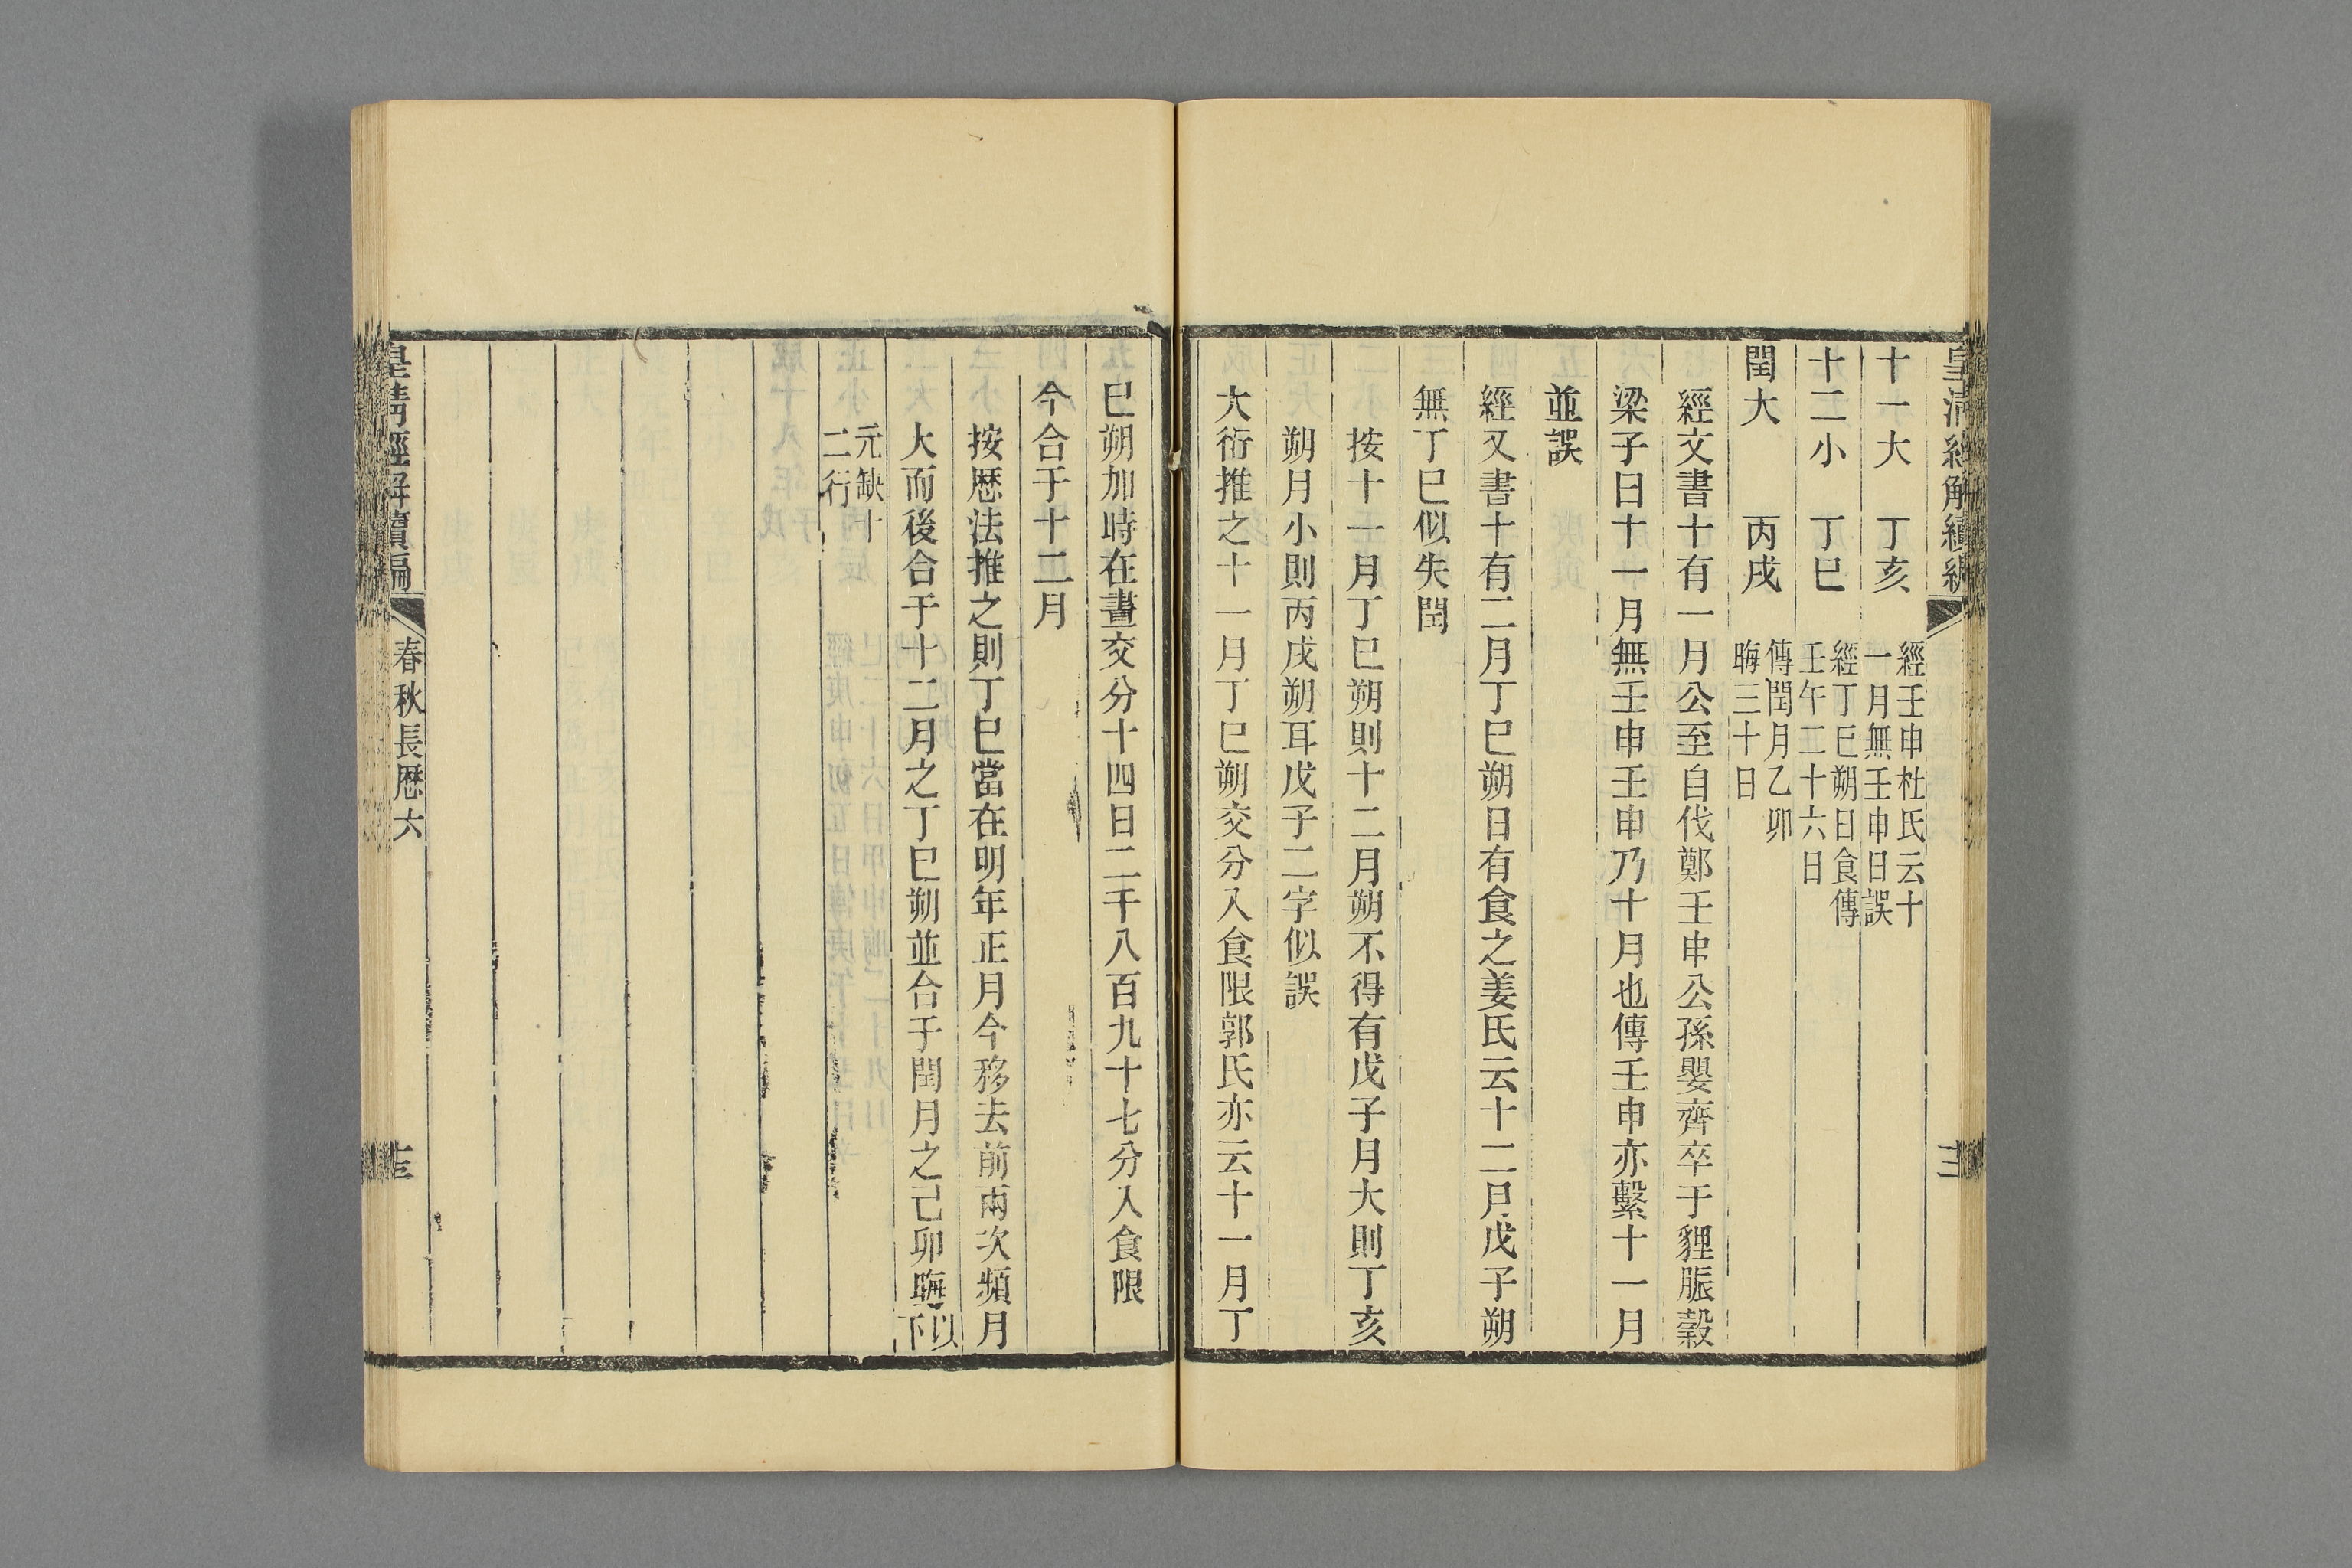 皇清經解續編
十一大　丁亥　經壬申杜氏云十一月無壬申日誤
十二小　丁巳　經丁巳朔日食傳壬午二十六日
閏大　丙戌　傳閏月乙卯晦三十日
經文書十有一月公至自伐鄭壬申公孫嬰齊卒于貍脤穀
梁子曰十一月無壬申壬申乃十月也傳壬申亦繫十一月
並誤
經又書十有二月丁巳朔日有食之姜氏云十二月戊子朔
無丁巳似失閏
按十一月丁巳朔則十二月朔不得有戊子月大則丁亥
朔月小則丙戌朔耳戊子二字似誤
大衍推之十一月丁巳朔交分入食限郭氏亦云十一月丁
巳朔加時在晝交分十四日二千八百九十七分入食限
今合于十二月
按歷法推之則丁巳當在明年正月今移去前兩次頻月
大而後合于十二月之丁巳朔並合于閏月之己卯晦以下
元缺十二行
皇清經解續編
春秋長歷六